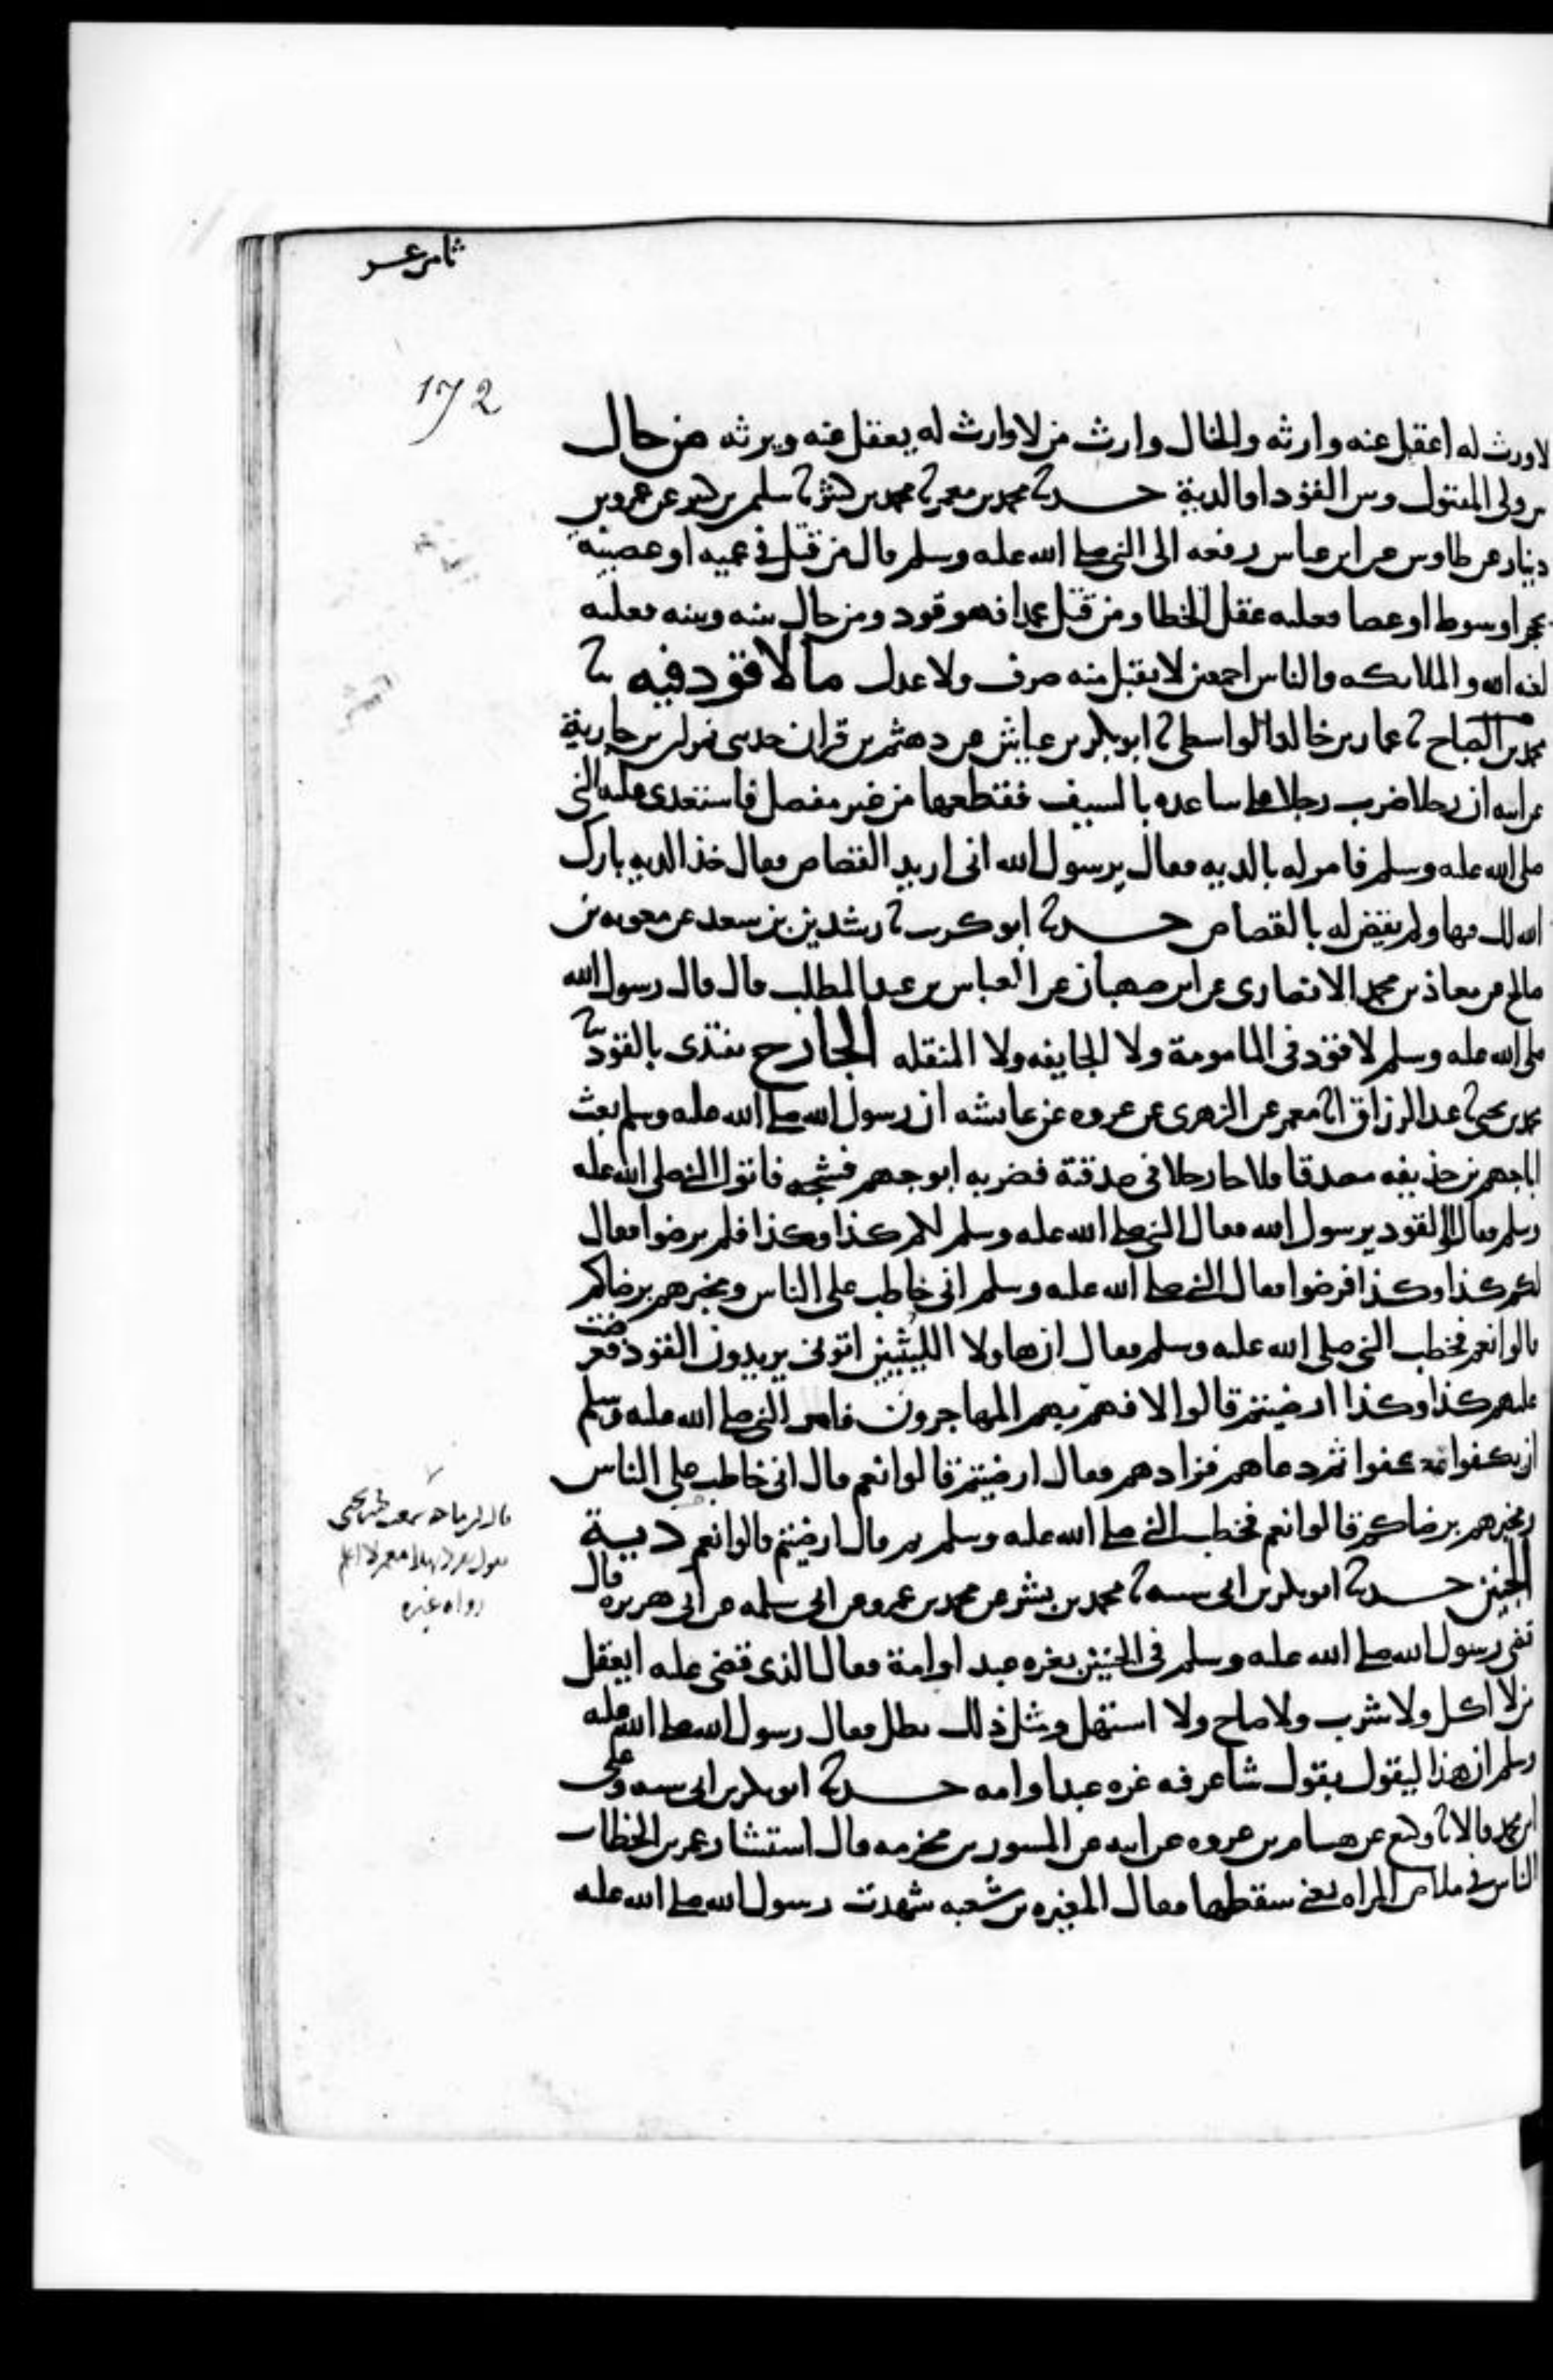 ثامن عشر
172
لا وارث له اعقل عنه وارثه والخال وارث من لا وارث له يعقل عنه ويرثه من حال
بين ولى المقتول وبين القود او الدية حدثنا محمد بن معمر ثنا محمد بن كثير ثنا سليمن بن كثير عن عمرو بن
دينار عن طاوس عن ابن عباس رفعه الى النبي صلى الله عليه وسلم قال من قتل في عميه او عصبيه
بحجر او سوط او عصا فعليه عقل الخطا ومن قتل عمدا فهو قود ومن حال بينه وبينه فعليه
لعنه الله والملائكه والناس اجمعين لا يقبل منه صرف ولا عدل ما لا قود فيه ثنا
محمد بن الصباح ثنا عمار بن خالد الواسطى ثنا ابو بكر بن عياش عن دهثم بن قران حدثنى نمران بن جارية
عن ابيه ان رجلا ضرب رجلا على ساعده بالسيف فقطعها من غير مفصل فاستعدى عليه النبي
صلى الله عليه وسلم فامر له بالديه فقال يرسول الله انى اريد القصاص فقال خذ الديه بارك
الله لك فيها ولم يقض له بالقصاص حدثنا ابو كريب ثنا رشدين بن سعد عن معويه بن
صالح عن معاذ بن محمد الانصارى عن ابن صهبان عن العباس بن عبد المطلب قال قال رسول الله
صلى الله عليه وسلم لا قود فى المامومة ولا الجايفه ولا المنقله الجارح يفتدى بالقود ثنا
محمد بن يحيى ثنا عبد الرزاق انا معمر عن الزهرى عن عروه عن عايشه ان رسول الله صلى الله عليه وسلم بعث
ابا جهم بن حذيفه مصدقا فلاحا رجلا فى صدقتة فضربه ابو جهم فشجه فاتوا النبي صلى الله عليه
وسلم فقالوا القود يرسول الله فقال النبي صلى الله عليه وسلم لكم كذا وكذا فلم يرضوا فقال
لكم كذا وكذا فرضوا فقال النبي صلى الله عليه وسلم انى خاطب على الناس ومخبرهم برضاكم
قالوا نعم فخطب النبي صلى الله عليه وسلم فقال ان هاولا الليثيين اتونى يريدون القود فعرضت
عليهم كذا وكذا ارضيتم قالوا لا فهم بهم المهاجرون فامر النبي صلى الله عليه وسلم
ان يكفوا فكفوا ثم دعاهم فزادهم فقال ارضيتم قالوا نعم قال انى خاطب على الناس
ومخبرهم برضاكم قالوا نعم فخطب النبي صلى الله عليه وسلم ثم قال ارضيتم قالوا نعم دية
الجنين حدثنا ابو بكر بن ابى شيبه ثنا محمد بن بشر عن محمد بن عمرو عن ابى سلمه عن ابى هريره قال
قضى رسول الله صلى الله عليه وسلم فى الجنين بغره عبد او امة فقال الذى قضى عليه ايعقل
من لا اكل ولا شرب ولا صاح ولا استهل ومثل ذلك يطل فقال رسول الله صلى الله عليه
وسلم ان هذا ليقول بقول شاعر فيه غره عبد او امه حدثنا ابو بكر بن ابى شيبه وعلى
ابن محمد قالا ثنا وكيع عن هشام بن عروه عن ابيه عن المسور بن مخرمه قال استشار عمر بن الخطاب
الناس فى ملاص المراه يعنى سقطها فقال المغيره بن شعبه شهدت رسول الله صلى الله عليه
قال ابن ماجه سمعت محمد بن يحيى
يقول تفرد بهذا معمر لا اعلم
رواه غيره